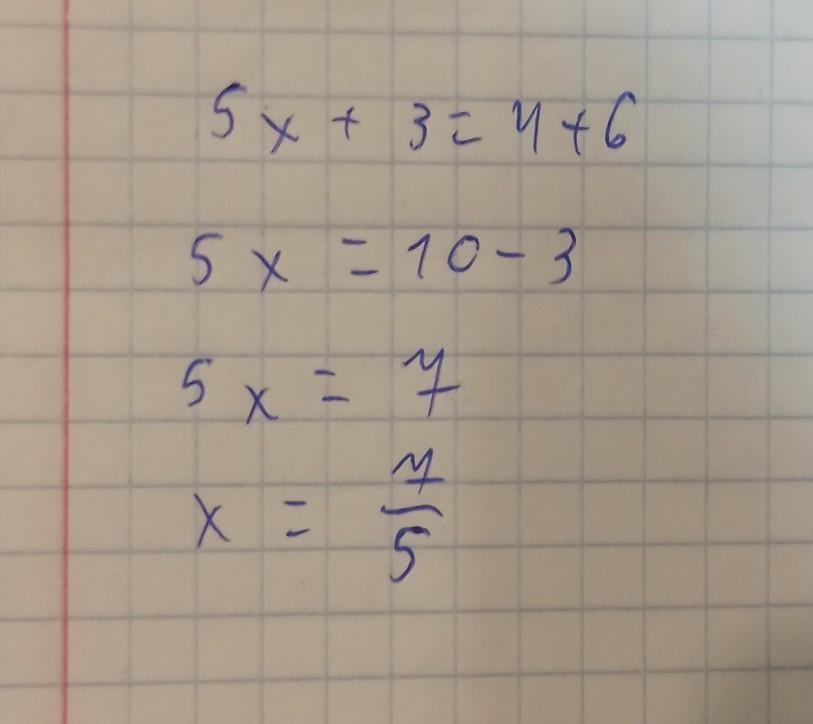 5x + 3 = 4 + 6
5x = 10 - 3
5x = 7
x = 7/5